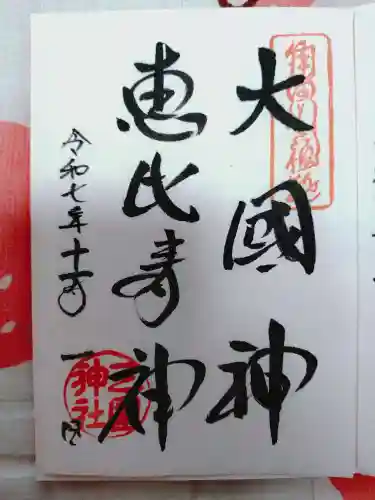 大國神
恵比寿神
令和七年十一月一日
三囲神社